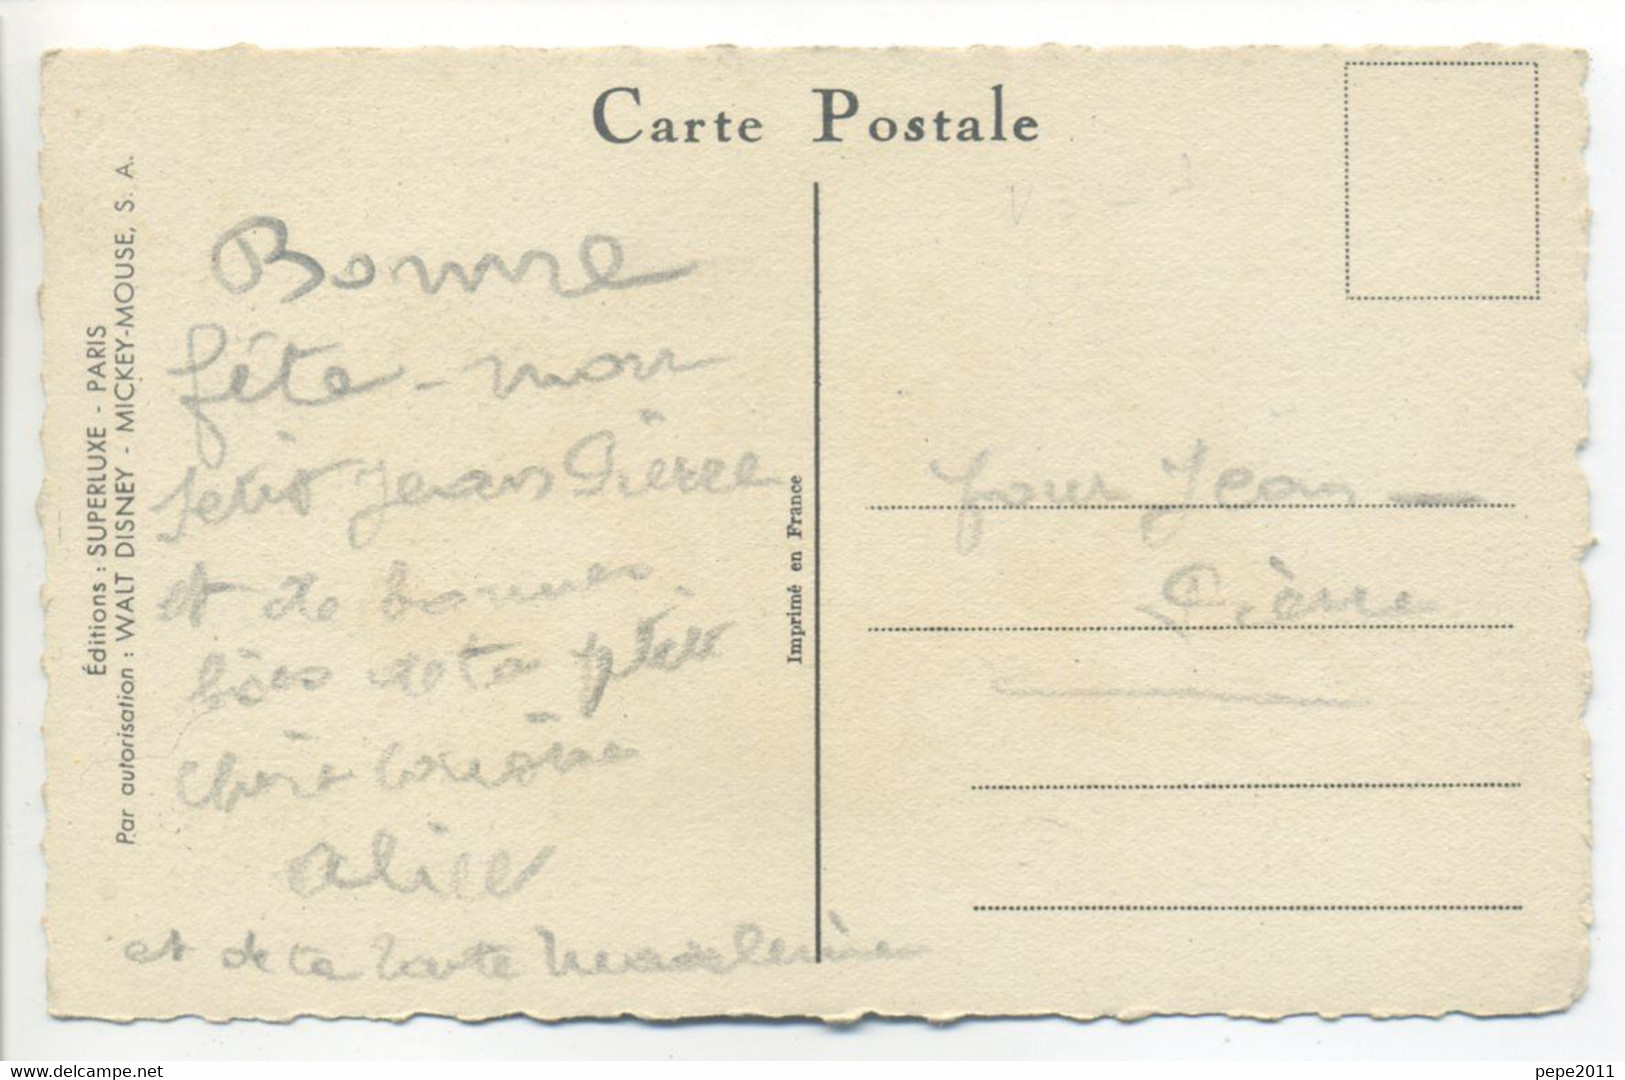 Carte Postale
Éditions : SUPERLUXE - PARIS
Par autorisation : WALT DISNEY - MICKEY-MOUSE, S. A.
Bonne
fête - mon
petit Jean Pierre
et de bonnes
de ta
Alice
et de ta tante Madeleine
Imprimé en France
pour Jean -
Pierre
delcampe.net
pepe2011